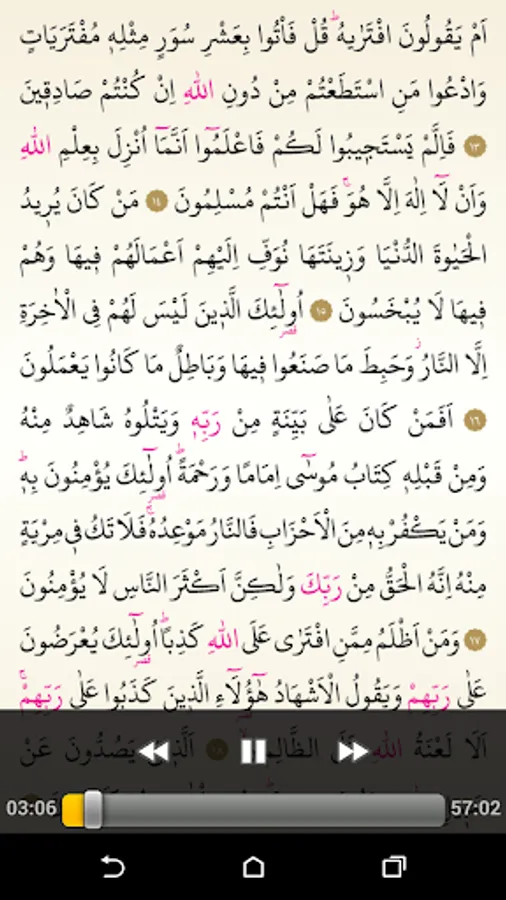 اَمْ يَقُولُونَ افْتَرٰيهُۜ قُلْ فَأْتُوا بِعَشْرِ سُوَرٍ مِثْلِه۪ مُفْتَرَيَاتٍ
وَادْعُوا مَنِ اسْتَطَعْتُمْ مِنْ دُونِ اللّٰهِ اِنْ كُنْتُمْ صَادِق۪ينَ
﴿١٣﴾ فَاِلَّمْ يَسْتَج۪يبُوا لَكُمْ فَاعْلَمُٓوا اَنَّمَٓا اُنْزِلَ بِعِلْمِ اللّٰهِ
وَاَنْ لَٓا اِلٰهَ اِلَّا هُوَۚ فَهَلْ اَنْتُمْ مُسْلِمُونَ ﴿١٤﴾ مَنْ كَانَ يُر۪يدُ
الْحَيٰوةَ الدُّنْيَا وَز۪ينَتَهَا نُوَفِّ اِلَيْهِمْ اَعْمَالَهُمْ ف۪يهَا وَهُمْ
ف۪يهَا لَا يُبْخَسُونَ ﴿١٥﴾ اُو۬لٰٓئِكَ الَّذ۪ينَ لَيْسَ لَهُمْ فِي الْاٰخِرَةِ
اِلَّا النَّارُۘ وَحَبِطَ مَا صَنَعُوا ف۪يهَا وَبَاطِلٌ مَا كَانُوا يَعْمَلُونَ
﴿١٦﴾ اَفَمَنْ كَانَ عَلٰى بَيِّنَةٍ مِنْ رَبِّه۪ وَيَتْلُوهُ شَاهِدٌ مِنْهُ
وَمِنْ قَبْلِه۪ كِتَابُ مُوسٰٓى اِمَامًا وَرَحْمَةًۜ اُو۬لٰٓئِكَ يُؤْمِنُونَ بِه۪ۜ
وَمَنْ يَكْفُرْ بِه۪ مِنَ الْاَحْزَابِ فَالنَّارُ مَوْعِدُهُۚ فَلَا تَكُ ف۪ي مِرْيَةٍ
مِنْهُ اِنَّهُ الْحَقُّ مِنْ رَبِّكَ وَلٰكِنَّ اَكْثَرَ النَّاسِ لَا يُؤْمِنُونَ
﴿١٧﴾ وَمَنْ اَظْلَمُ مِمَّنِ افْتَرٰى عَلَى اللّٰهِ كَذِبًاۜ اُو۬لٰٓئِكَ يُعْرَضُونَ
عَلٰى رَبِّهِمْ وَيَقُولُ الْاَشْهَادُ هٰٓؤُ۬لَٓاءِ الَّذ۪ينَ كَذَبُوا عَلٰى رَبِّهِمْۚ
اَلَا لَعْنَةُ اللّٰهِ عَلَى الظَّالِم۪ينَ ﴿١٨﴾ اَلَّذ۪ينَ يَصُدُّونَ عَنْ
03:06 57:02